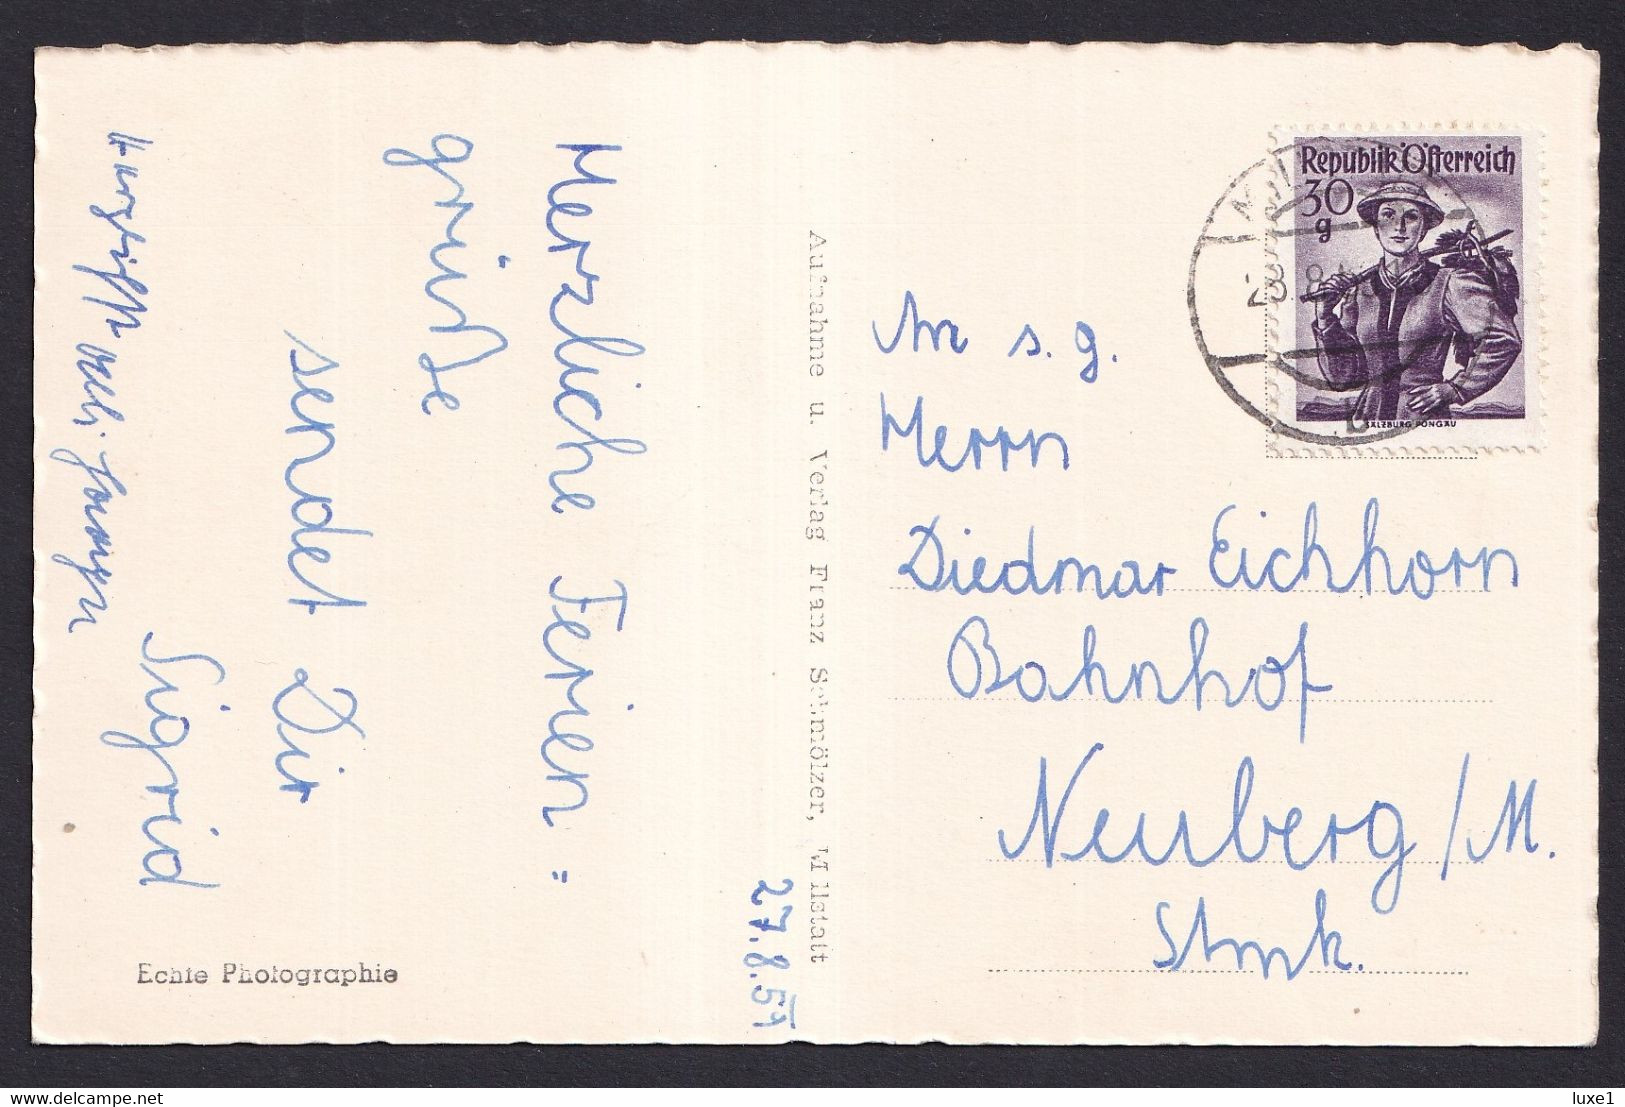 27.8.51
Herzliche Ferien =
grüße
sendet Dir
Sigrid
Echte Photographie
Aufnahme u. Verlag Franz Schmölzer, Millstatt
Republik Österreich
30
g
SALZBURG PONGAU
An s. g.
Herrn
Diedmar Eichhorn
Bahnhof
Neuberg/M.
Stmk.
delcampe.net
luxe1